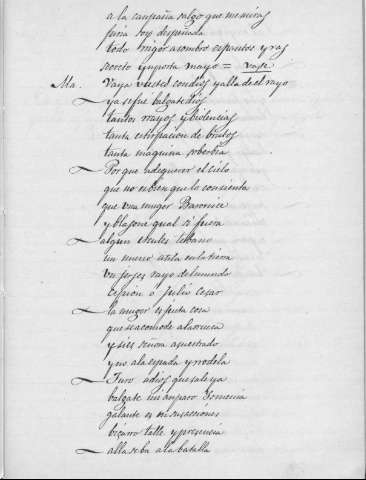 a la campaña salgo que mientras
furia soy despeñada
todo rigor asombro espantos y ras
secreto ymporta mayo = vase
Ma. Vaya usted con dios y alla de el rayo
ya se fue balgate dios
tantos rrayos y biolencias
tanta estirpacion de brutos
tanta maquina soberbia
Por que a de querer el cielo
que no es bien que lo consienta
que una muger Baronice
y blasone qual si fuera
algun ercules tebano
un nuevo atila en la tierra
un jerjes rayo del mundo
cepion o Julio Cesar
la muger es justa cosa
que se acomode a la rrueca
y si es señora a su estrado
y no a la espada y rrodela
Juro a dios que sale ya
balgate mi amparo
galante es en sus acciones
biçarro talle y presencia
alla se ba a la batalla